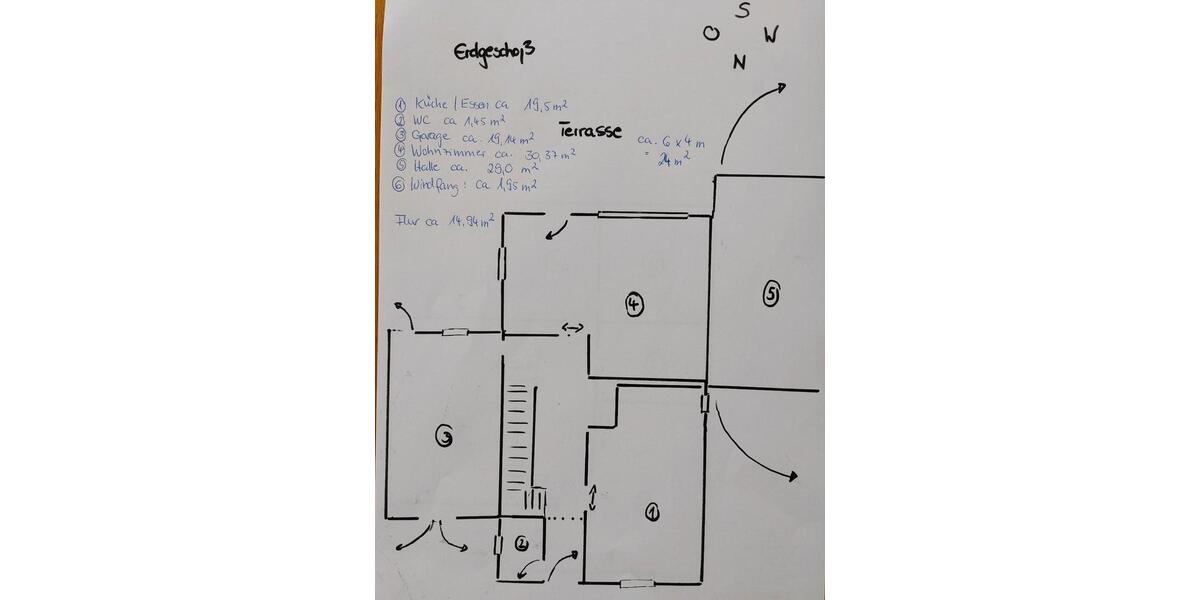 S
O W
N
Erdgeschoß
① Küche / Essen ca 19,5 m²
② WC ca 1,45 m²
③ Garage ca. 19,14 m²
④ Wohnzimmer ca. 30,37 m²
⑤ Halle ca. 29,0 m²
⑥ Windfang: ca 1,95 m²
Flur ca 14,94 m²
Terrasse ca. 6 x 4 m
= 24 m²
④
⑤
③
①
②